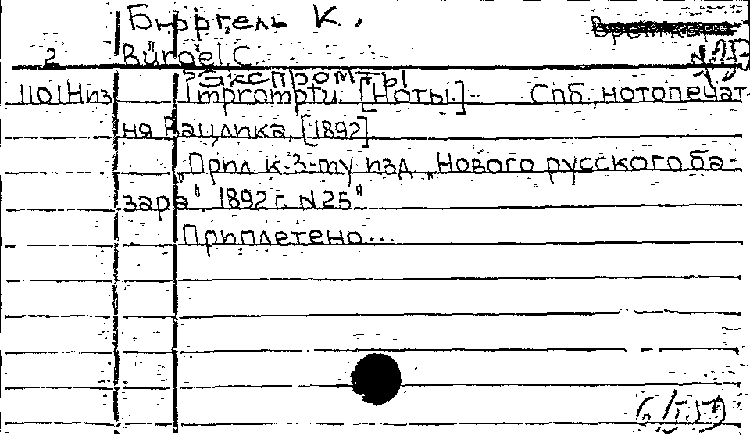 Бюргель К.
2 Bürgel C.
Экспромты
1101Низ Impromptu. [Ноты.]- Спб., нотопечат-
ня Вацлика, [1892]
"Прил. к-3-му изд. „Нового русского ба-
зара" 1892 г. N25"
Приплетено...
6/I.59